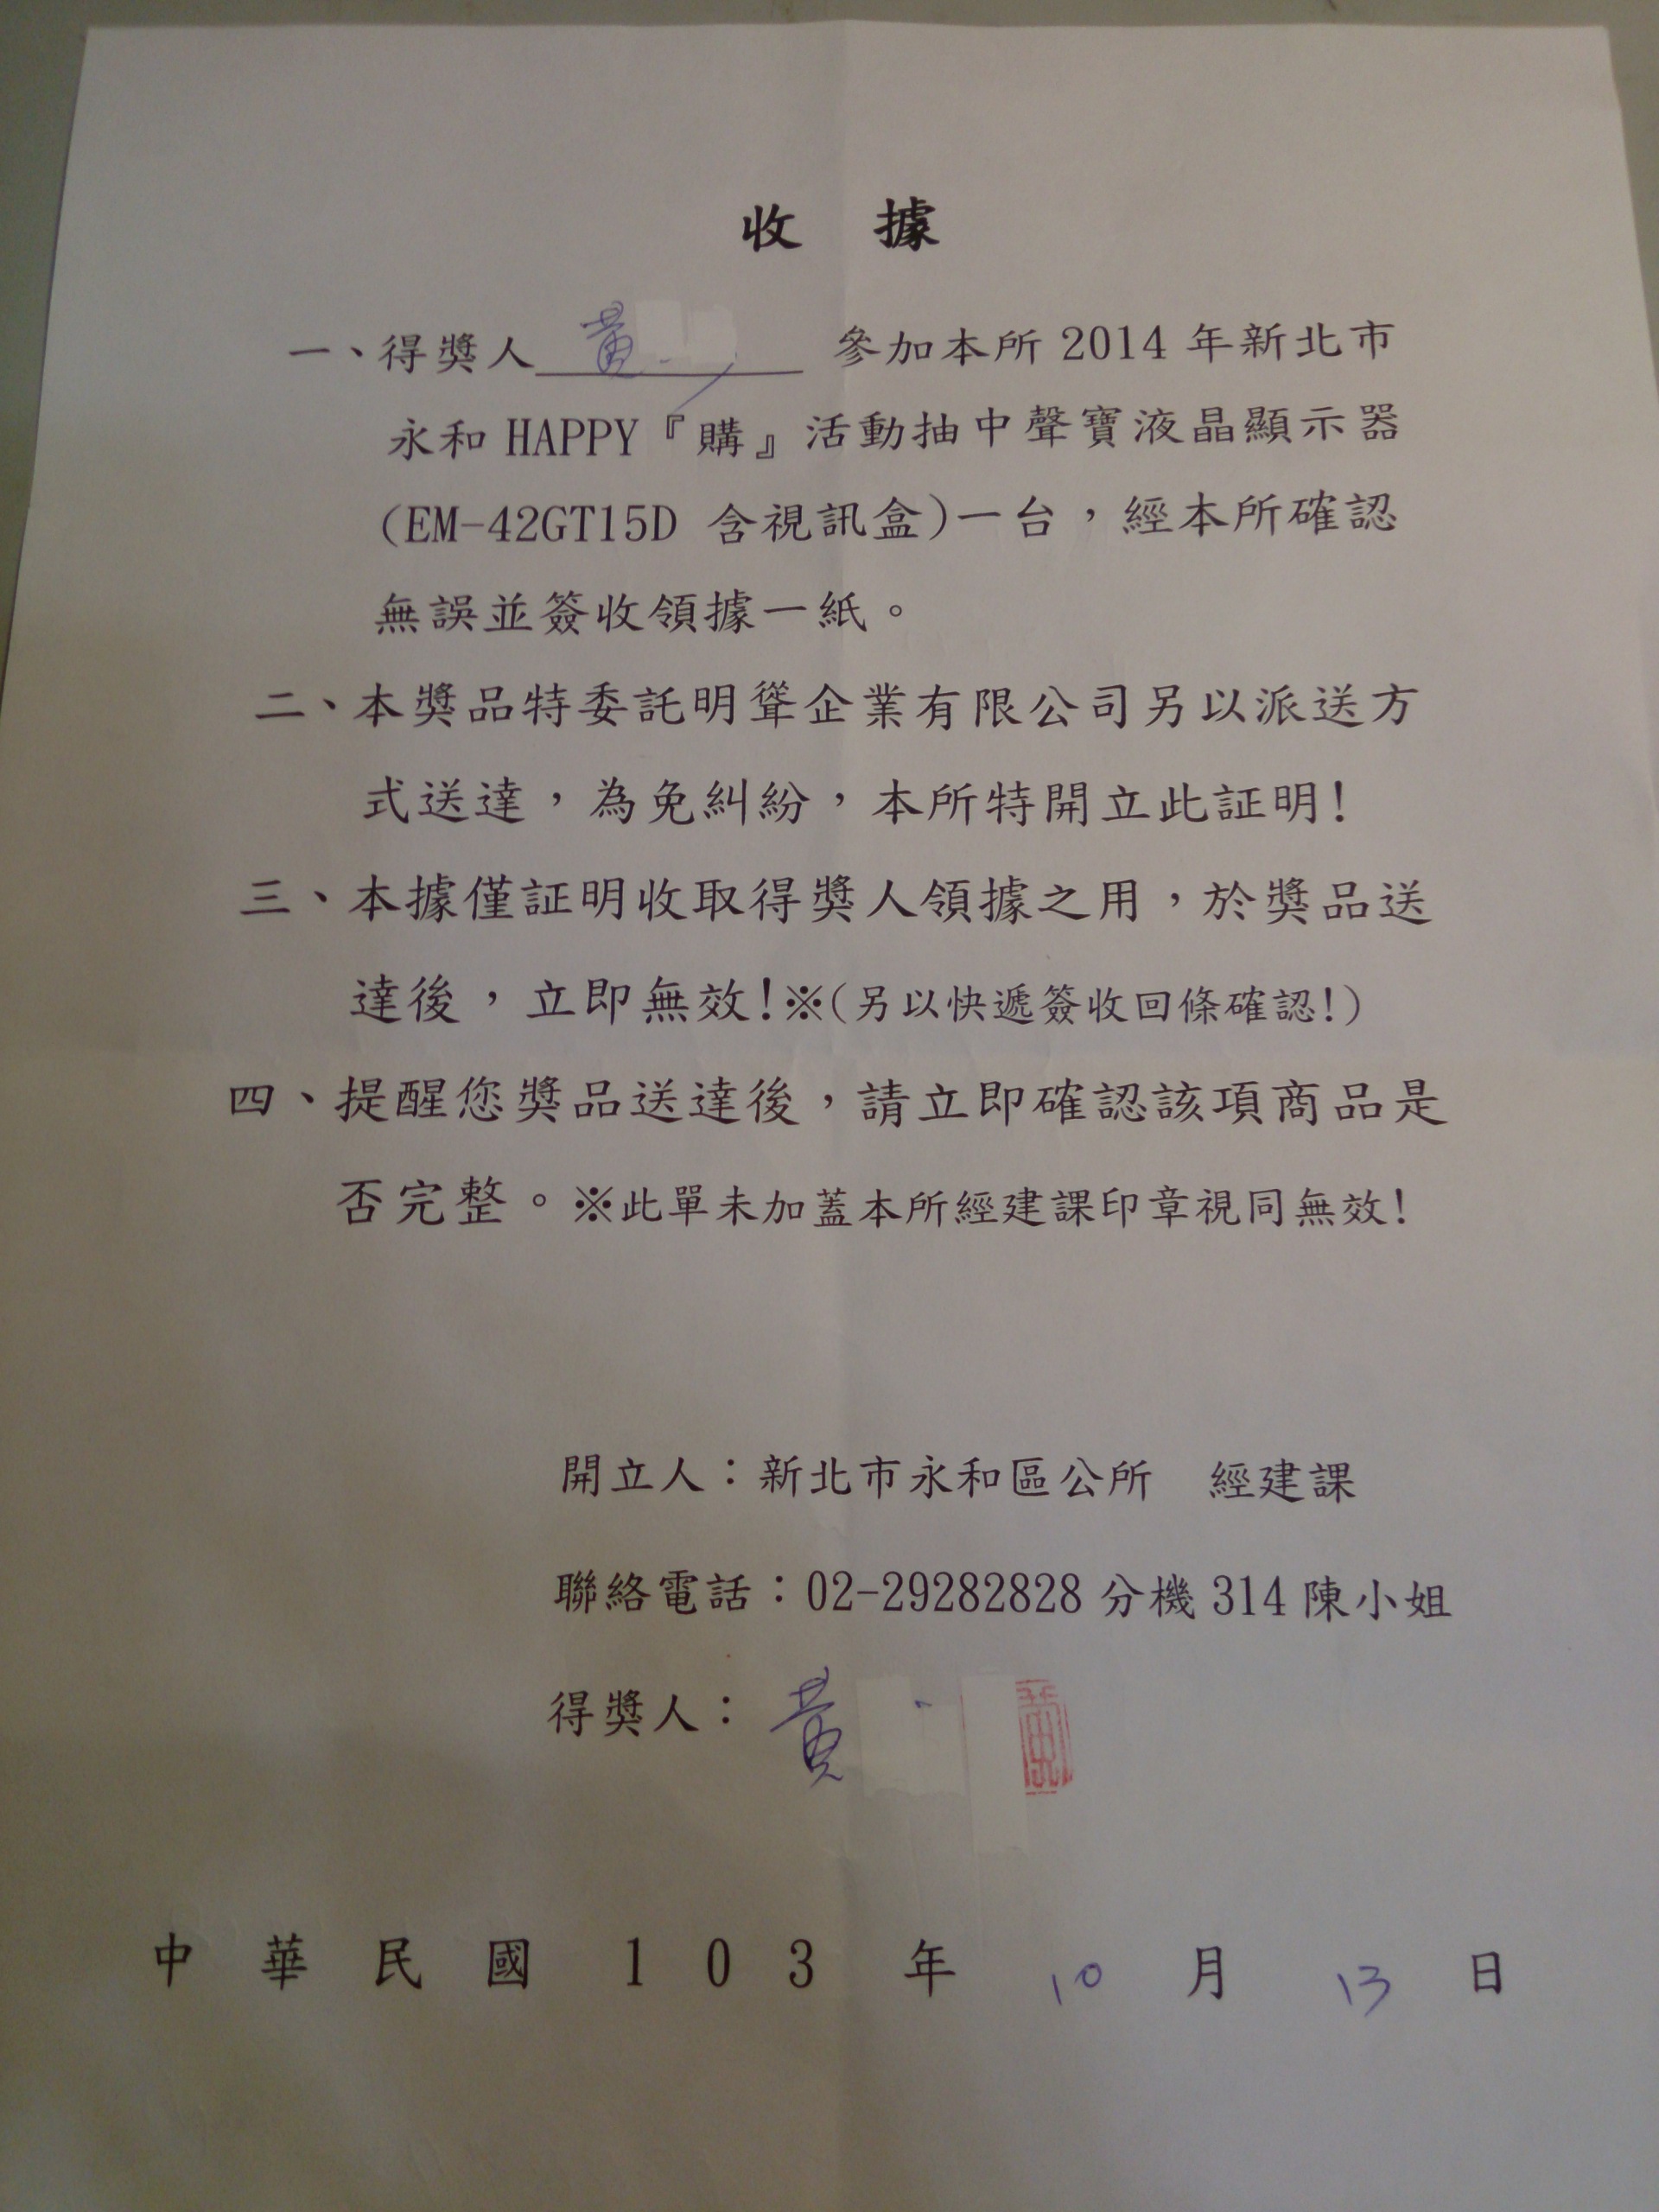 收 據
一、得獎人 黃 參加本所 2014 年新北市
永和 HAPPY『購』活動抽中聲寶液晶顯示器
(EM-42GT15D 含視訊盒)一台，經本所確認
無誤並簽收領據一紙。
二、本獎品特委託明聳企業有限公司另以派送方
式送達，為免糾紛，本所特開立此証明!
三、本據僅証明收取得獎人領據之用，於獎品送
達後，立即無效!※(另以快遞簽收回條確認!)
四、提醒您獎品送達後，請立即確認該項商品是
否完整。※此單未加蓋本所經建課印章視同無效!
開立人：新北市永和區公所 經建課
聯絡電話：02-29282828 分機 314 陳小姐
得獎人： 黃
中 華 民 國 1 0 3 年 10 月 13 日